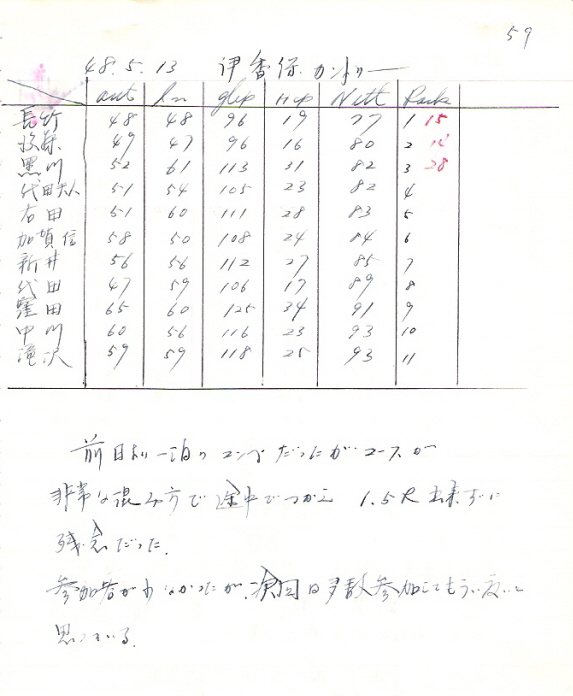 59
48. 5. 13 伊香保カントリー
out In Hcp Nett Rank
長竹 48 48 96 19 77 1 15
49 47 96 16 80 2
黒川 52 61 113 31 82 3 28
代田夫人 51 54 105 23 82 4
右田 51 60 111 28 83 5
加賀信 58 50 108 24 84 6
新井 56 56 112 27 85 7
代田 47 59 106 17 89 8
窪田 65 60 125 34 91 9
中川 60 56 116 23 93 10
滝沢 59 59 118 25 93 11
前日より一泊のコンペだったがコースが
非常な混み方で途中でつかえ 1.5R 出来ずに
残念だった.
参加者が少なかったが、次回は多数参加してもらい度いと
思っている.